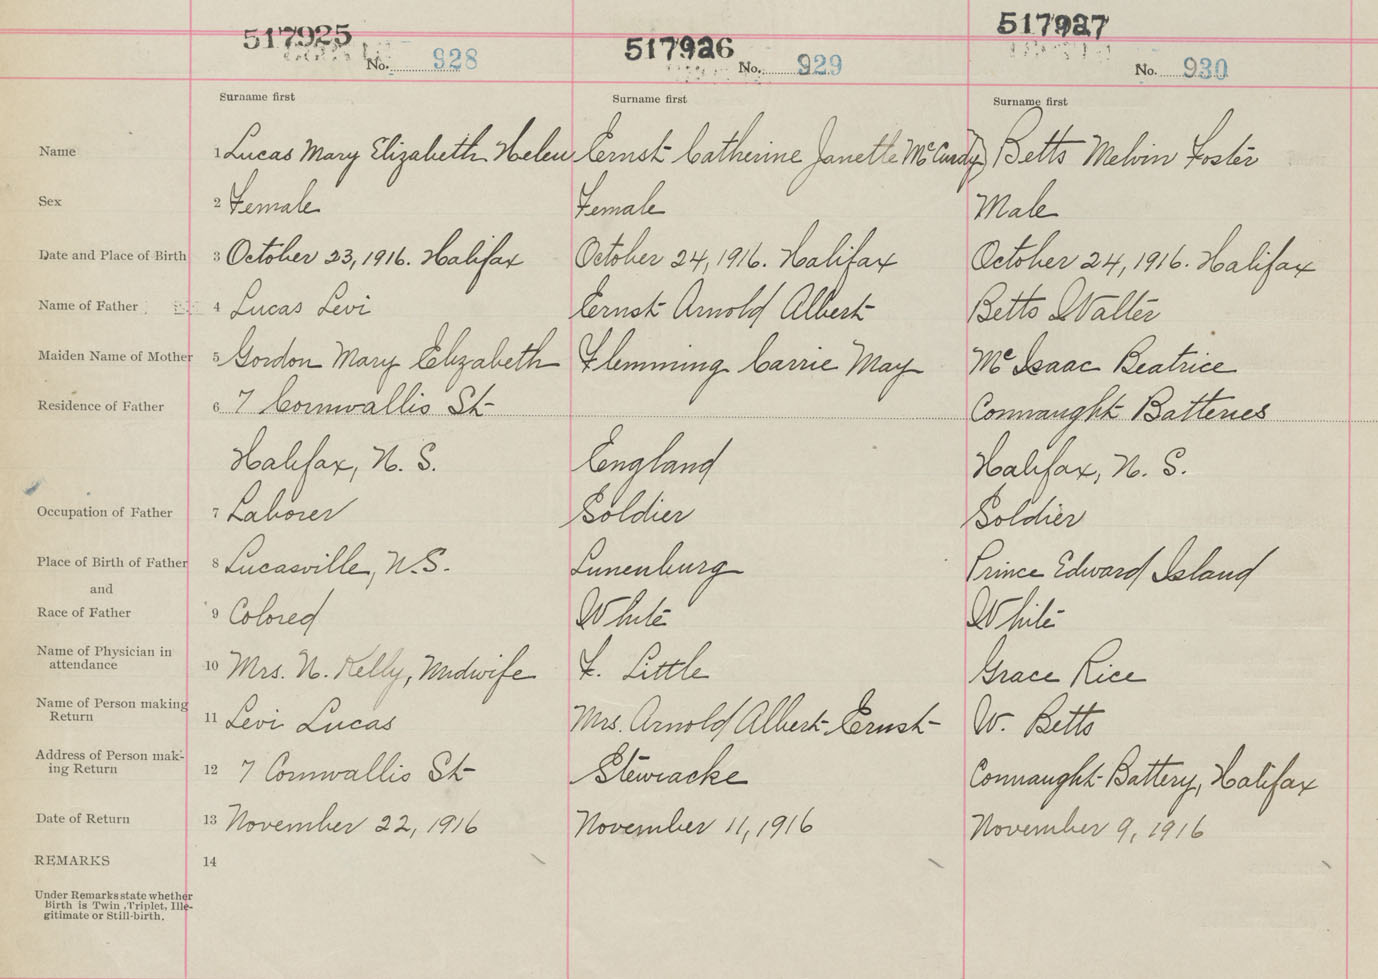 517925 517926 517927
No. 928 No. 929 No. 930
Surname first Surname first Surname first
Name 1 Lucas Mary Elizabeth Helen Ernst Catherine Janette McCurdy Betts Melvin Foster
Sex 2 Female Female Male
Date and Place of Birth 3 October 23, 1916. Halifax October 24, 1916. Halifax October 24, 1916. Halifax
Name of Father 4 Lucas Levi Ernst Arnold Albert Betts Walter
Maiden Name of Mother 5 Gordon Mary Elizabeth Flemming Carrie May McIsaac Beatrice
Residence of Father 6 7 Cornwallis St Connaught Batteries
Halifax, N. S. England Halifax, N. S.
Occupation of Father 7 Laborer Soldier Soldier
Place of Birth of Father 8 Lucasville, N.S. Lunenburg Prince Edward Island
and
Race of Father 9 Colored White White
Name of Physician in
attendance 10 Mrs. N. Kelly, Midwife F. Little Grace Rice
Name of Person making
Return 11 Levi Lucas Mrs. Arnold Albert Ernst W. Betts
Address of Person mak-
ing Return 12 7 Cornwallis St Stewiacke Connaught Battery, Halifax
Date of Return 13 November 22, 1916 November 11, 1916 November 9, 1916
REMARKS 14
Under Remarks state whether
Birth is Twin, Triplet, Ille-
gitimate or Still-birth.